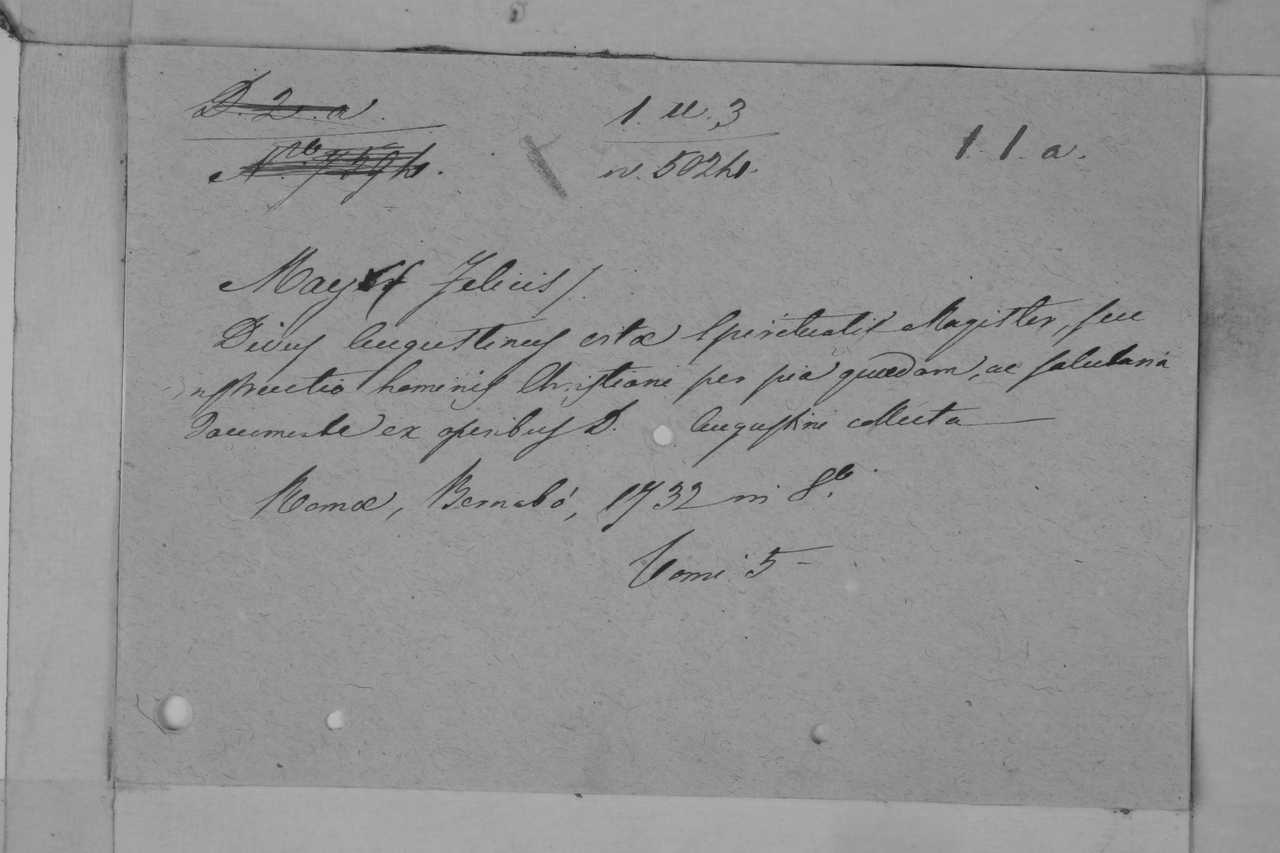 D. 2. a. 1. u. 3 1. 1. a.
n. 5024.
Felicis).
Divus Augustinus Spiritualis Magister, seu
Instructio hominis Christiani per pia quædam, ac salutaria
documenta ex operibus D. Augustini collecta
Romæ, Bernabó, 1732 in 8º.
Tomi 5